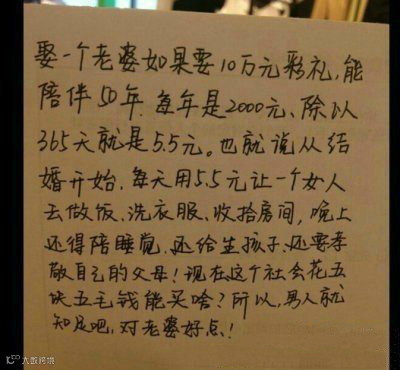 娶一个老婆如果要10万元彩礼,能
陪伴50年.每年是2000元、除以
365天就是5.5元。也就说从结
婚开始.每天用5.5元让一个女人
去做饭、洗衣服、收拾房间,晚上
还得陪睡觉.还给生孩子、还要孝
敬自己的父母!现在这个社会花五
块五毛钱能买啥?所以,男人就
知足吧,对老婆好点!
大西跨境